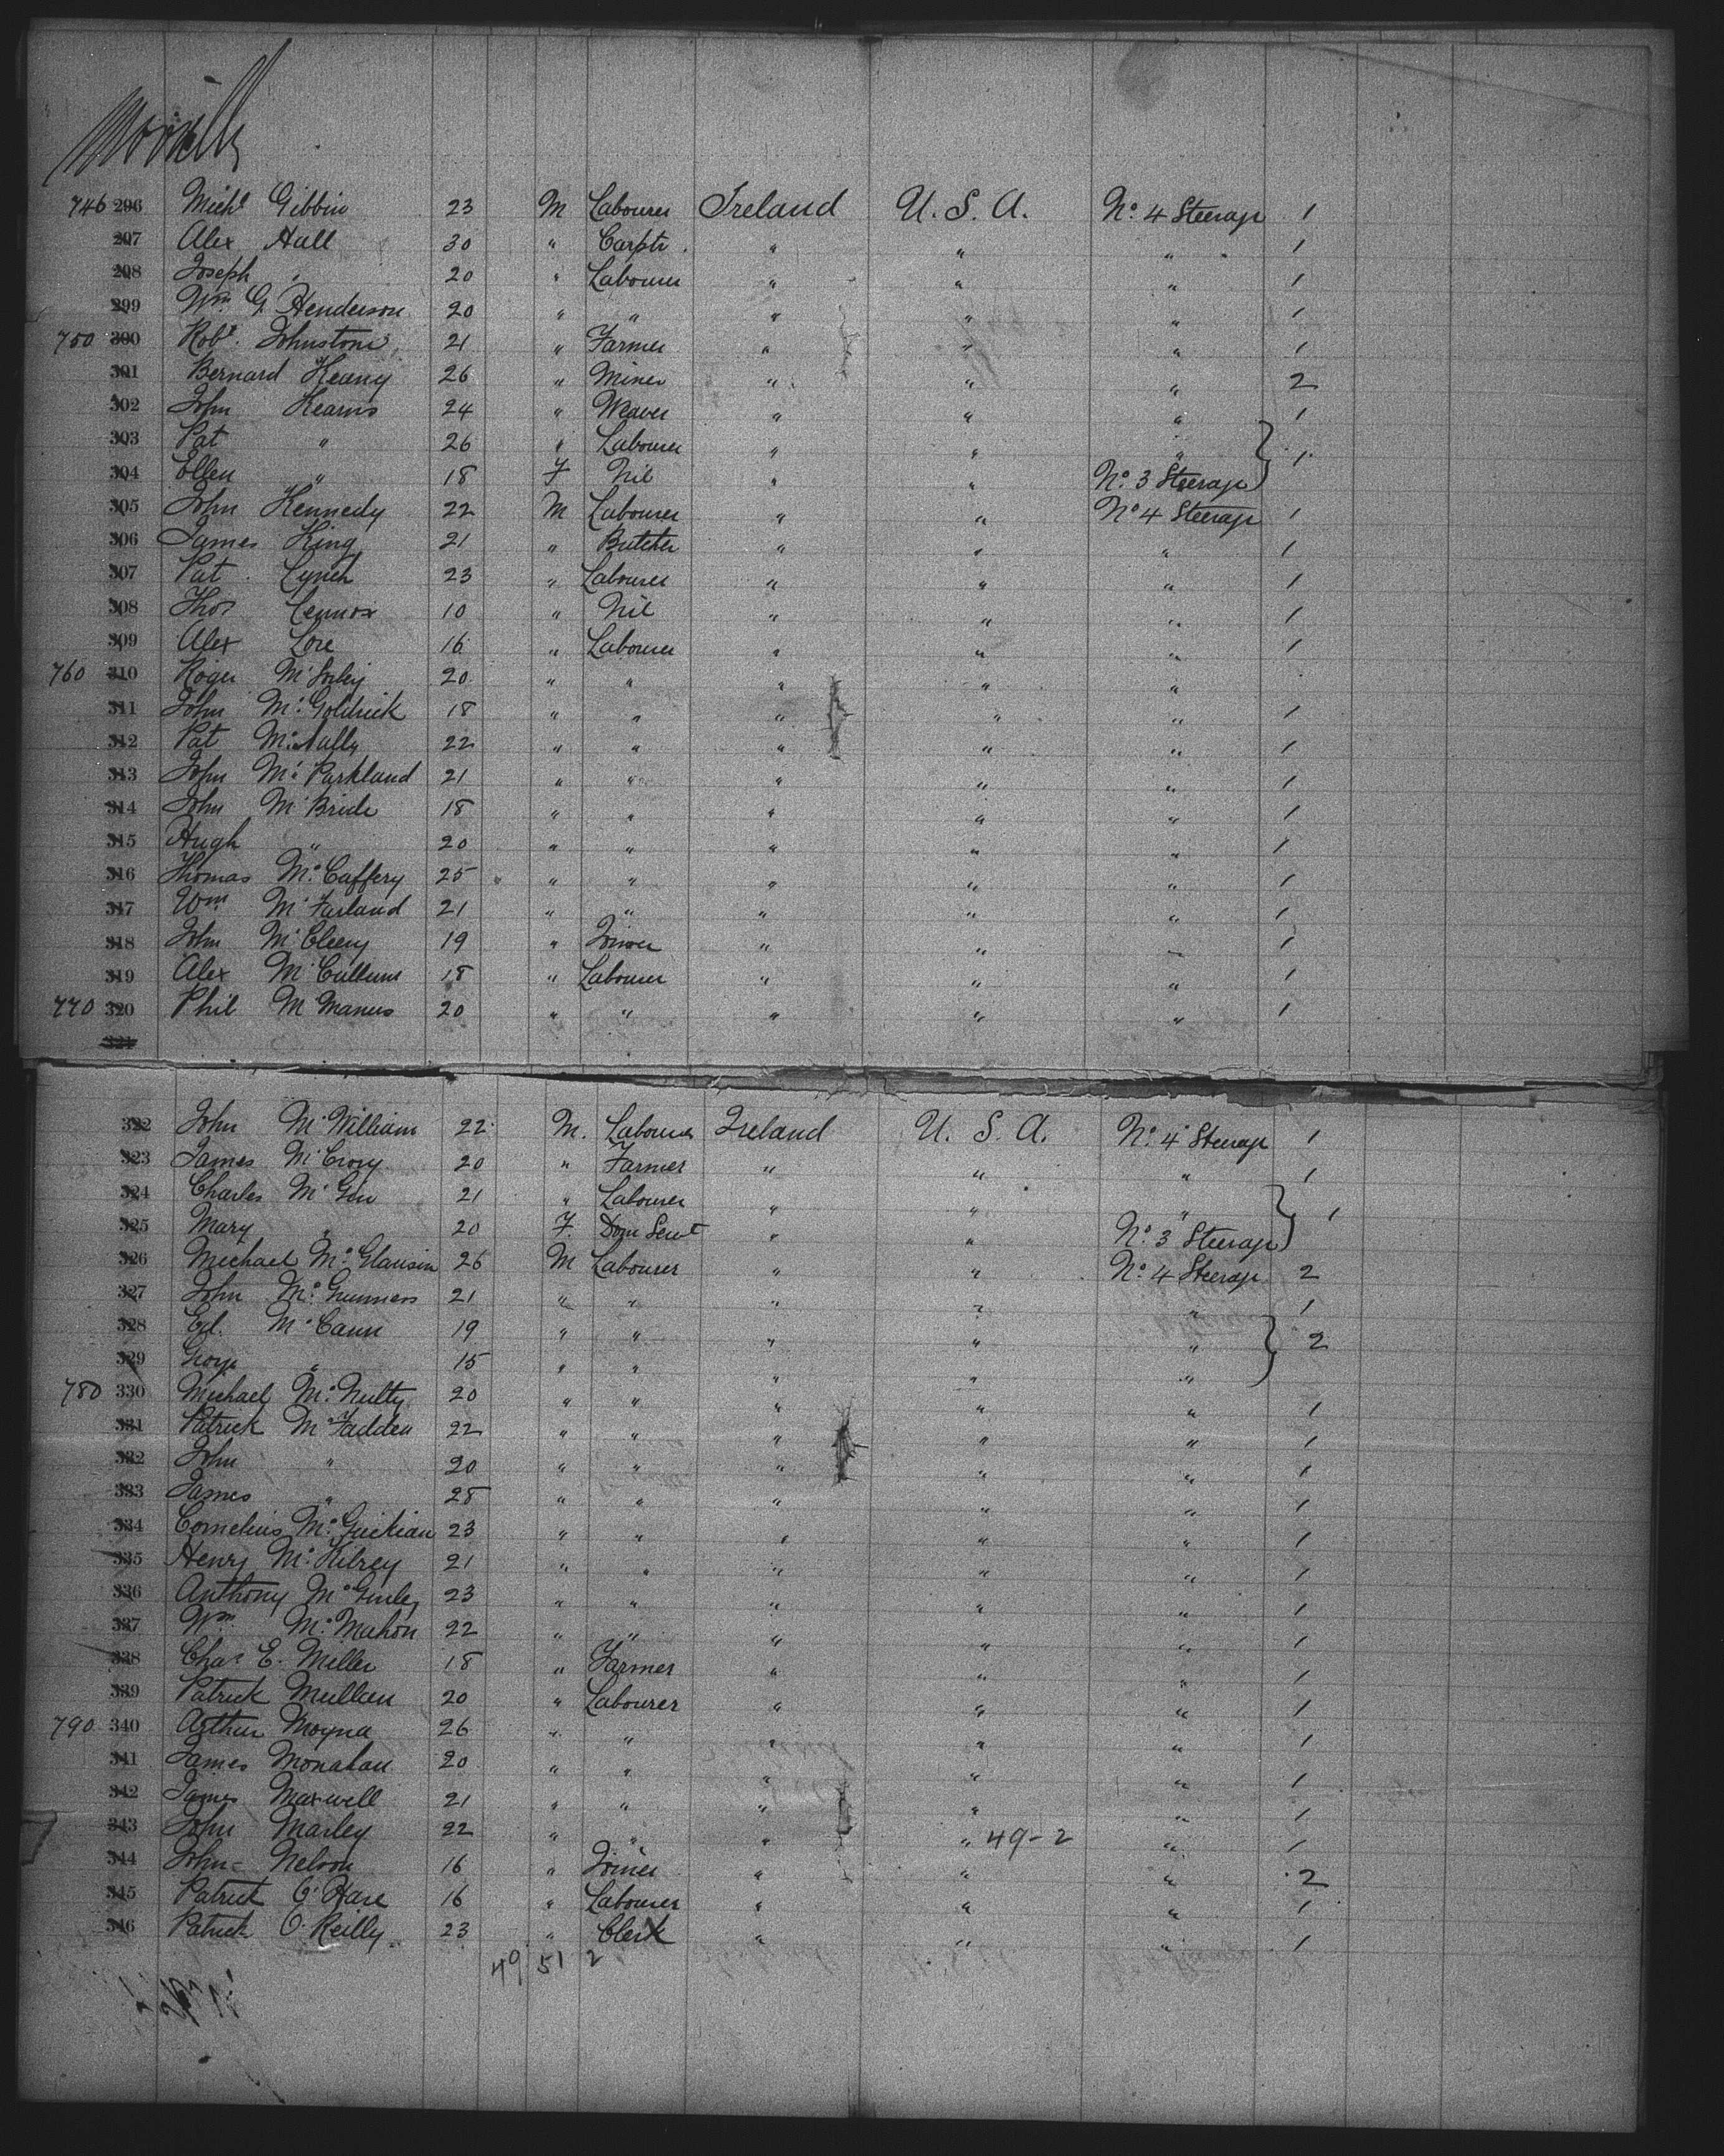 Moville
746 296 Michl Gibbin 23 M Labourer Ireland U. S. A. No. 4 Steerage 1
297 Alex Hall 30 " Carptr. " " " 1
298 Joseph " 20 " Labourer " " " 1
299 Wm. G. Henderson 20 " " " " " 1
750 300 Robt. Johnstone 21 " Farmer " " " 1
301 Bernard Keany 26 " Miner " " " 2
302 John Kearns 24 " Weaver " " " 1
303 Pat " 26 " Labourer " " " } 1
304 Ellen " 18 F Nil " " No. 3 Steerage
305 John Kennedy 22 M Labourer " " No 4 Steerage 1
306 James King 21 " Butcher " " " 1
307 Pat Lynch 23 " Labourer " " " 1
308 Thos Lennox 10 " Nil " " " 1
309 Alex Lore 16 " Labourer " " " 1
760 310 Roger 20 " " " " "
311 John Mc Goldrick 18 " " " " " 1
312 Pat Mc Nully 22 " " " " " 1
313 John Mc Parkland 21 " " " " " 1
314 John Mc Bride 18 " " " " " 1
315 Hugh " 20 " " " " " 1
316 Thomas Mc Caffery 25 " " " " " 1
317 Wm Mc Farland 21 " " " " " 1
318 John Mc Cleery 19 " Joiner " " " 1
319 Alex Mc Cullum 18 " Labourer " " " 1
770 320 Phil Mc Manus 20 " " " " " 1
321
322 John Mc William 22 M. Labourer Ireland U. S. A. No. 4 Steerage 1
323 James Mc Crory 20 " Farmer " " " 1
324 Charles Mc Gin 21 " Labourer " " " } 1
325 Mary " 20 F. Dom Servt " " No. 3 Steerage
326 Michael 26 M Labourer " " No. 4 Steerage 2
327 John 21 " " " " " 1
328 Ed. Mc Cann 19 " " " " " } 2
329 George " 15 " " " " "
780 330 Michael Mc Nulty 20 " " " " " 1
331 Patrick Mc Fadden 22 " " " " " 1
332 John " 20 " " " " " 1
333 James " 28 " " " " " 1
334 Cornelius Mc Guckian 23 " " " " " 1
335 Henry Mc Kilrey 21 " " " " " 1
336 Anthony Mc Ginley 23 " " " " " 1
337 Wm Mc Mahon 22 " " " " " 1
338 Chas E. Miller 18 " Farmer " " " 1
339 Patrick Mullan 20 " Labourer " " " 1
790 340 Arthur Moyna 26 " " " " " 1
341 James Monahan 20 " " " " " 1
342 James Maxwell 21 " " " " " 1
343 John Marley 22 " " " " 49-2 " 1
344 John Nelson 16 " Joiner " " " 2
345 Patrick O'Hare 16 " Labourer " " " 1
346 Patrick O'Reilly 23 " Clerk " " " 1
49 51 2